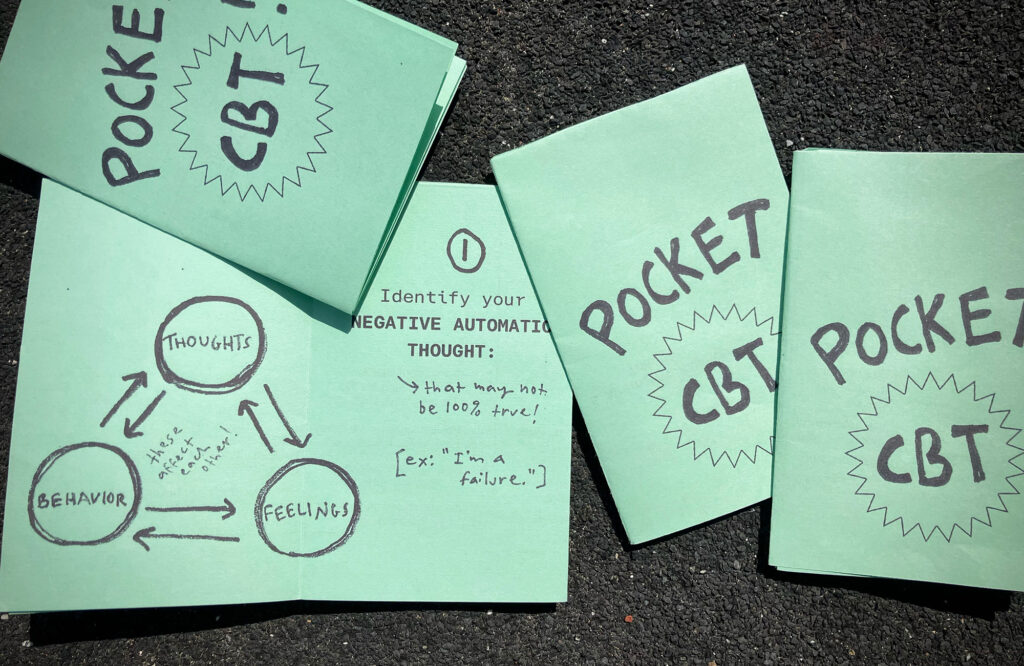 POCKET
CBT
THOUGHTS
these
affect
each
other!
BEHAVIOR
FEELINGS
1
Identify your
NEGATIVE AUTOMATIC
THOUGHT:
that may not
be 100% true!
[ex: "I'm a
failure."]
POCKET
CBT
POCKET
CBT